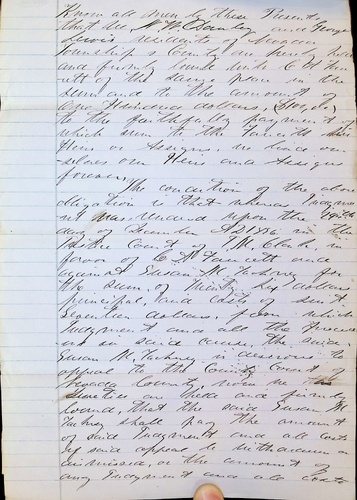 Know all men by these Presents
that we A. W. and George
Lewis residents of Nevada
Township & County are
and firmly bound unto C. D. Faw
cett of the same place in the
sum and to the amount of
One Hundred dollars,
to the faithfully payment of
which sum to the Fawcett his
Heirs or Assigns we bind our-
selves our Heirs and Assigns
forever.
The condition of the above
obligation is that whereas Judgme
nt was rendered upon the
day of December AD 1856 in the
Justice Court of T. W. Clark in
favor of C D Fawcett and
against Susan M. for
the sum of Thirty Six dollars
principal, and costs of suit
Seventeen dollars, from which
Judgment and all the proceed
in said cause, the said
Susan M. is desirous to
appeal to the County Court of
Nevada County, now
Sureties are held and firmly
bound, that the said Susan M.
shall pay the amount
of said Judgment and all costs
if said appeal be withdrawn or
dismissed, or the amount of
any Judgment and all costs